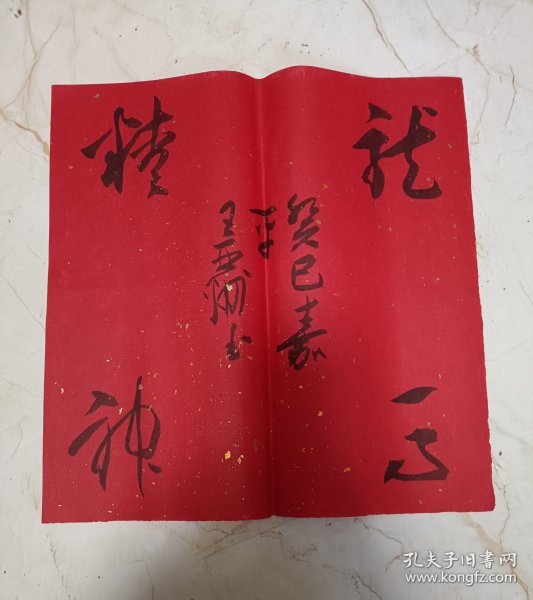 龙马
精神
癸巳嘉
平
王亚洲书
孔夫子旧书网
www.kongfz.com